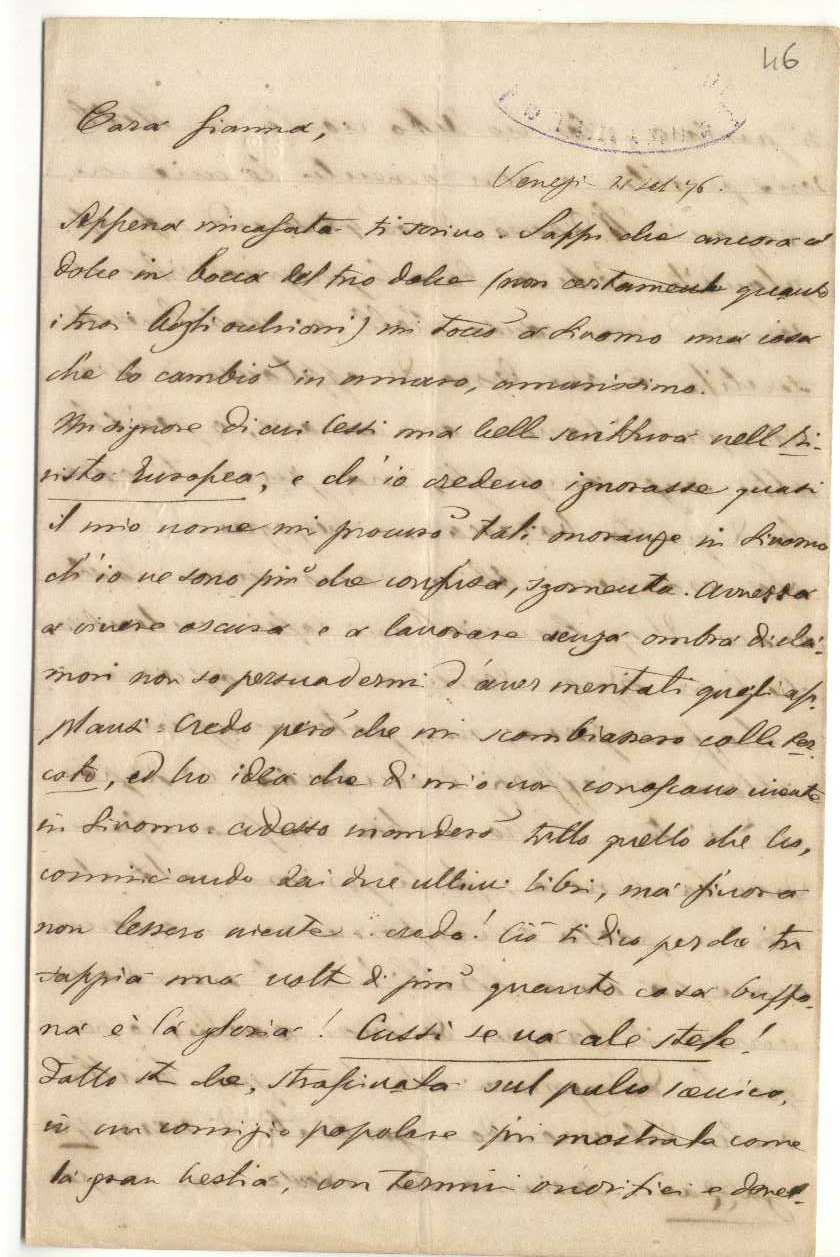 46
Cara Gianna,
Venezi 21 set 76.
Appena rincasata ti scrivo. Sappi che ancora col
dolce in bocca del tuo dolce (non certamente quanto
i tuoi) mi toccò a Livorno una cosa
che lo cambiò in amaro, amarissimo.
Un signore di cui lessi una bella scrittura nell Ri-
vista Europea, e ch'io credevo ignorasse quasi
il mio nome mi procurò tali onoranze in Livorno
ch'io ne sono più che confusa, sgomenta. Avvezza
a vivere oscura e a lavorare senza ombra di cla-
mori non so persuadermi d'aver meritati quegli ap-
plausi. Credo però che mi scambiassero colla Per-
coto, ed ho idea che di mio non conoscano niente
in Livorno. Adesso manderò tutto quello che ho,
cominciando dai due ultimi libri, ma finora
non lessero niente credo! Ciò ti dico perché tu
sappia una volta di più quanto cosa buffo-
na è la gloria! Cussì se va ale stele!
Fatto sta che, strascinata sul palco scenico,
in un comizio popolare fui mostrata come
la gran bestia, con termini onorifici e